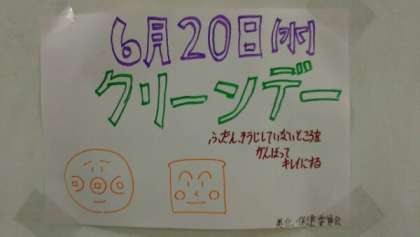 6月20日(水)
クリーンデー
ふだん、そうじしていないところを
がんばって
キレイにする
美化・保健委員会